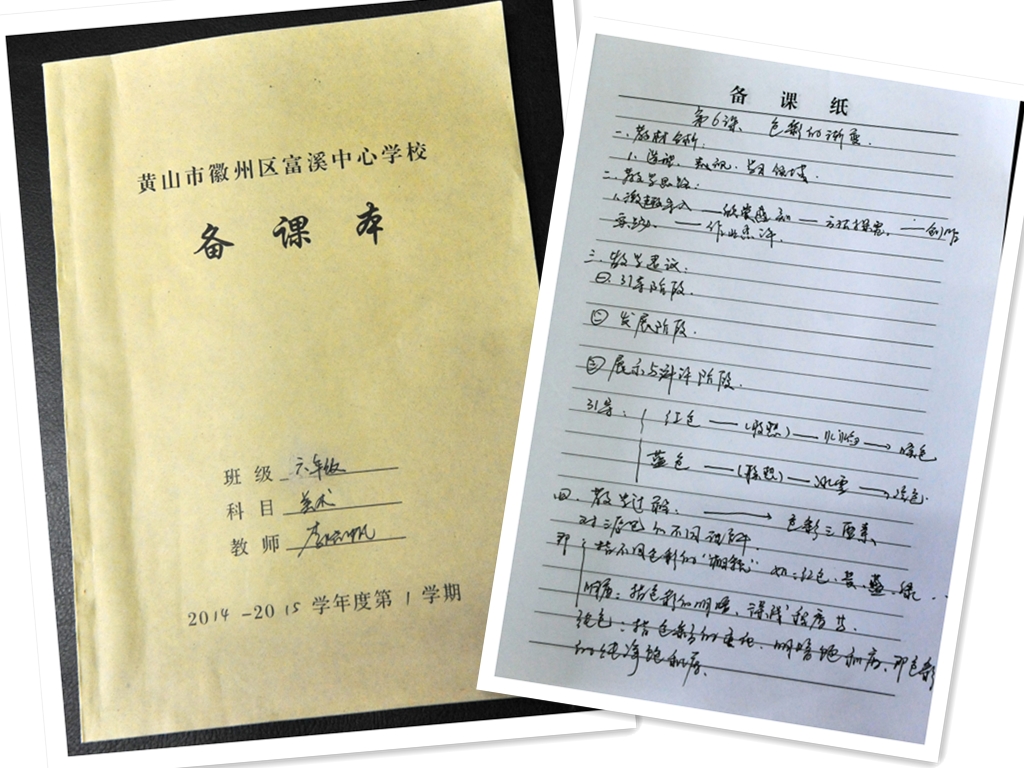 黄山市徽州区富溪中心学校
备课本
班级 六年级
科目 美术
教师
2014-2015学年度第1学期
备课纸
第6课、色彩的渐变.
一、教材分析:
1.
二、教学思路:
1、激趣导入——欣赏感知——方法探究.——创作
实践.——作业点评.
三、教学建议:
㊀.引导阶段.
㊁发展阶段.
㊂展示与评阶段.
引导: 红色——(联想)——火焰→暖色
蓝色——(联想)——冰雪→冷色
四、教学过程. → 色彩三要素
对三的不同
指不同色彩的“相貌” 如:红色、黄、蓝、绿...
明度:指色彩的明暗、深浅程度
纯色:指色彩的变化,明暗饱和度,即色彩
的纯净饱和度.